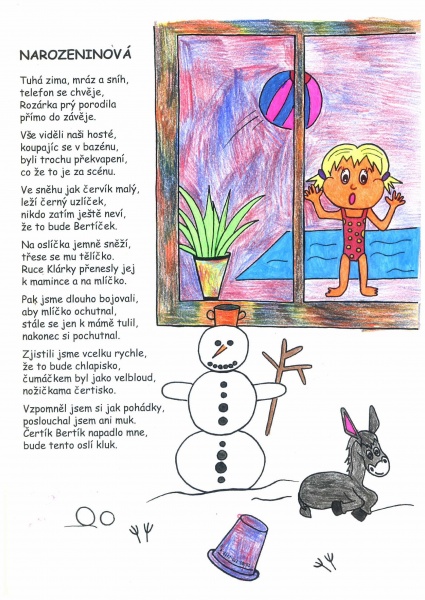 NAROZENINOVÁ
Tuhá zima, mráz a sníh,
telefon se chvěje,
Rozárka prý porodila
přímo do závěje.
Vše viděli naši hosté,
koupajíc se v bazénu,
byli trochu překvapení,
co že to je za scénu.
Ve sněhu jak červík malý,
leží černý uzlíček,
nikdo zatím ještě neví,
že to bude Bertíček.
Na oslíčka jemně sněží,
třese se mu tělíčko.
Ruce Klárky přenesly jej
k mamince a na mlíčko.
Pak jsme dlouho bojovali,
aby mlíčko ochutnal,
stále se jen k mámě tulil,
nakonec si pochutnal.
Zjistili jsme vcelku rychle,
že to bude chlapisko,
čumáčkem byl jako velbloud,
nožičkama čertisko.
Vzpomněl jsem si jak pohádky,
poslouchal jsem ani muk.
Čertík Bertík napadlo mne,
bude tento oslí kluk.